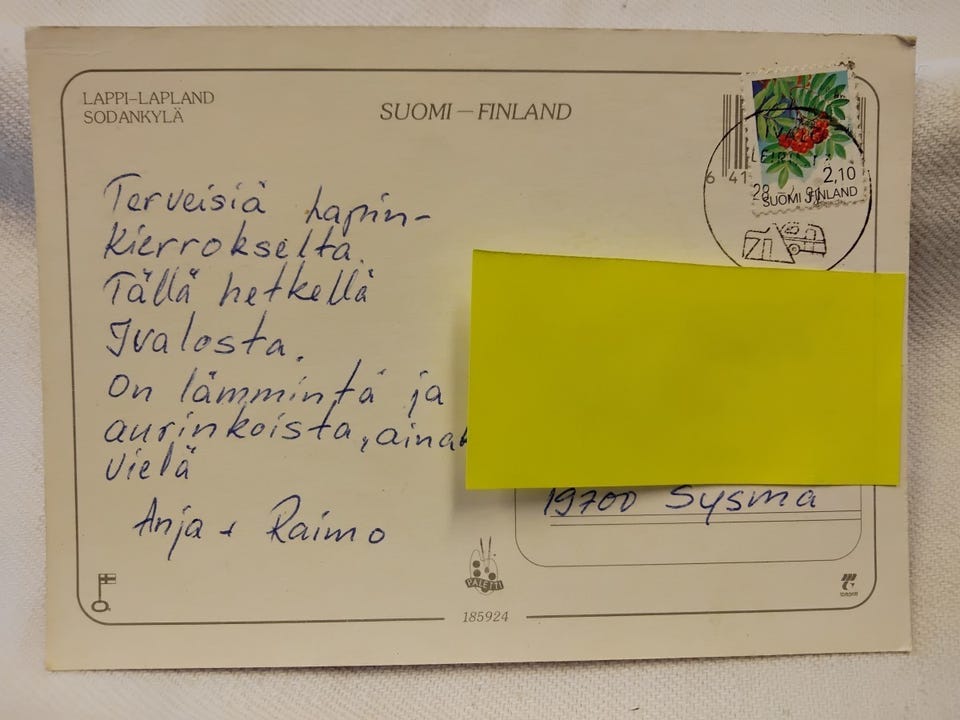 LAPPI–LAPLAND
SODANKYLÄ
SUOMI – FINLAND
2,10
SUOMI FINLAND
IVALO
28
6 41
Terveisiä Lapin-
kierrokselta.
Tällä hetkellä
Ivalosta.
On lämmintä ja
aurinkoista, aina
vielä
Anja + Raimo
19700 Sysmä
PALETTI
185924